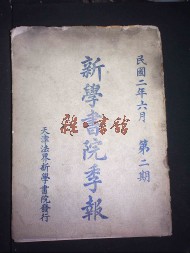 民國二年六月 第二期
新學書院季報
天津法界新學書院發行